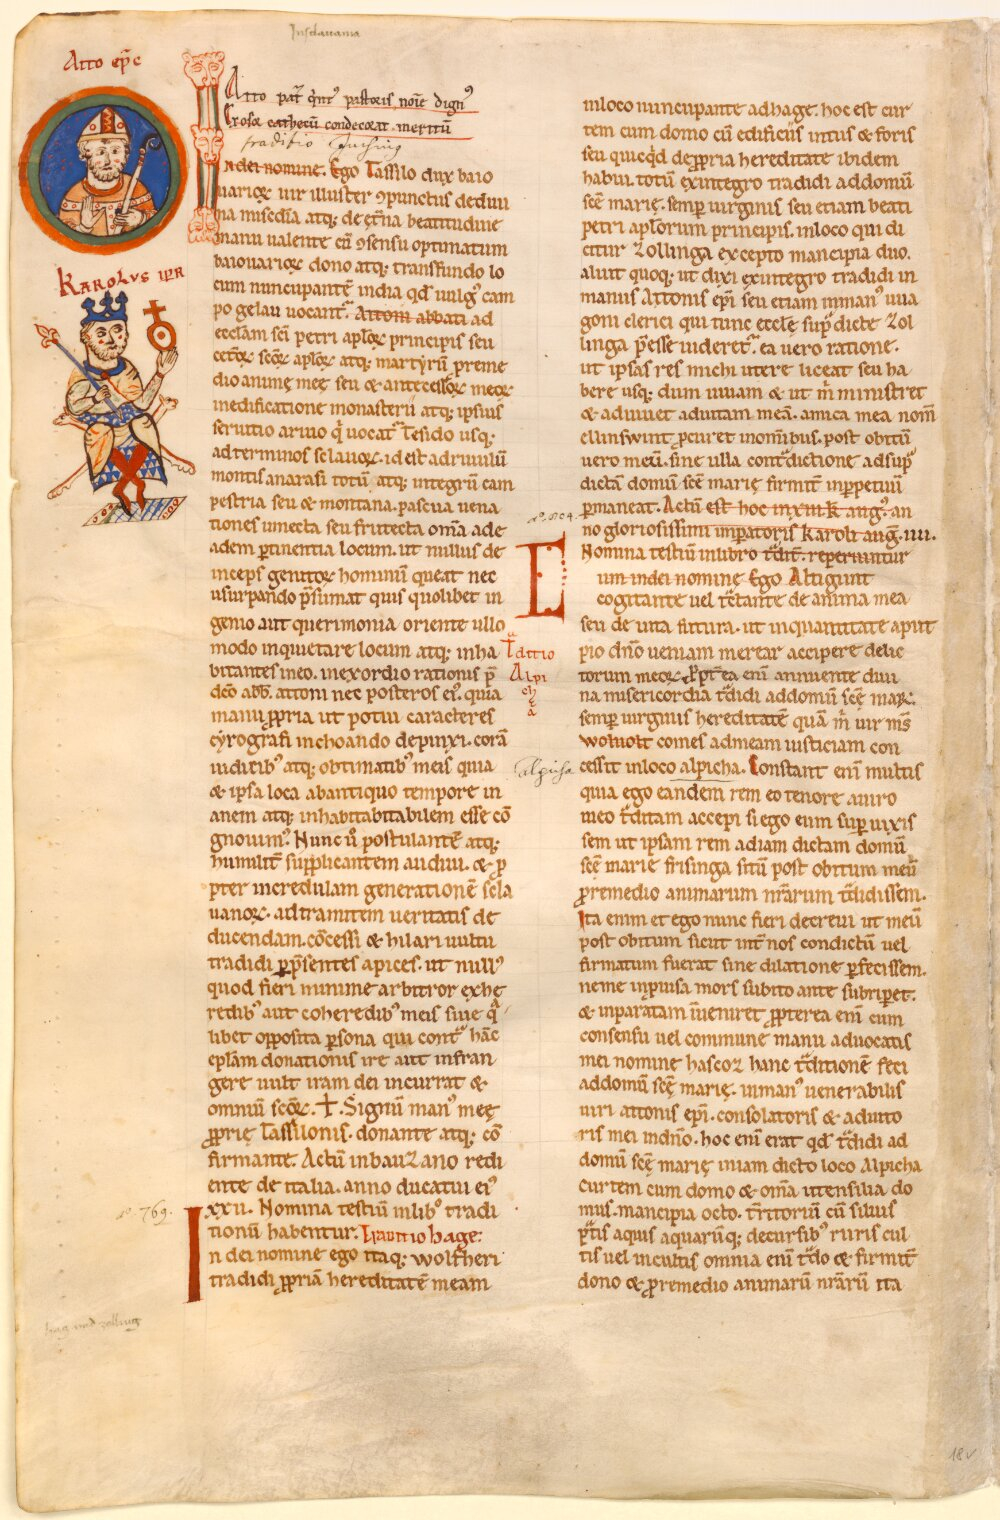 Insclauania
Atto ep̄c
KAROLVS IPR
Atto pat͛ q̄nt᷒ pastoris, noīe dign᷒
traditio Inching
N dei nomine. Ego Tassilo dux baio
uarioꝝ uir illuster ꝯpunctus deduii
na misedīa atq; de et̄na beatitudine
manu ualente cū ꝯsensu optimatum
baiouarioꝝ dono atq; transfundo lo
cum nuncupantē india qđ uulg᷒ cam
po gelau uocant᷑. Attoni abbati ad
ecclām scī petri aplōꝝ principis seu
cet̄oꝝ scōꝝ aplōꝝ atq; martyrū preme
dio animę meę seu & antecessoꝝ meoꝝ
inedificatione monasterii atq; ipsius
seruitio ariuo q̇ uocat᷑ tesido usq;
ad terminos sclauoꝝ. id est ad riuulū
montis anarasi totū atq; integrū cam
pestria seu & montana. pascua uena
tiones umecta seu frutecta om̄a ade
adem ꝑtinentia locum. ut nullus de
inceps genitoꝝ hominū queat nec
usurpando p̄sumat quis quolibet in
genio aut querimonia oriente ullo
modo inquietare locum atq; inha
bitantes ineo. inexordio rationis p̄
dc̄o abb. attoni nec posteros ei᷒. quia
manu ꝓpria ut potui caracteres
cyrografi inchoando depinxi. corā
iudicib᷒ atq; obtimatib᷒ meis quia
& ipsa loca abantiquo tempore in
anem atq; inhabitabitabilem esse cō
gnouim᷒. Nunc u͛ postulantē atq;
humilit͛ supplicantem audiui. & ꝓ
pter incredulam generationē scla
uanoꝝ. ad tramitem ueritatis de
ducendam. cōcessi & hilari uultu
tradidi ꝑp̄sentes apices. ut null᷒
quod fieri minime arbitror exhę
redib᷒ aut coheredib᷒ meis siue qͣ
libet opposita ꝑsona qui contͣ hāc
eplām donationis ire aut infran
gere uult iram dei incurrat &
omniū scōꝝ. ✝. Signū man᷒ meę
ꝓprię Tassilonis. donante atq; cō
firmante. Actū inbauzano redi
ente de italia. anno ducatui ei᷒
xxii. Nomina testiū inlib᷒ tradi
tionū habentur. Traditio hage.
aº. 769.
In dei nomine ego itaq; wolfheri
tradidi ꝓpriā hereditatē meam
hag und zolling
inloco nuncupante adhage. hoc est cur
tem cum domo cū edificiis intus & foris
seu quicq̇d deꝓpria hereditate ibidem
habui. totū exintegro tradidi addomū
scē marię. semꝑ uirginis seu etiam beati
petri aplōrum principis. inloco qui di
citur zollinga excepto mancipia duo.
aliut quoq; ut dixi exintegro tradidi in
manus Attonis ep̄i seu etiam inman᷒ uua
goni clerici qui tunc ecclę supͣdicte zol
linga p̄esse uideret᷑. ea uero ratione.
ut ipsas res michi utere liceat seu ha
bere usq; dum uiuam & ut m̄ ministret
& adiuuet aduitam meā. amica mea nom̄
ellinswint ꝓcuret inom̄ibus. post obitū
uero meū. sine ulla contͣdictione adsupͣ
dictā domū scē marię firmit͛ inꝑpetuū
ꝑmaneat. Actū est hoc inxiii. k̄ aug᷒. an
no gloriosissimi imꝑatoris karoli aug̅. iiii.
aº. 804.
Nomina testiū inlibro t͛dit͛. reperiuntur
Eum indei nomine Ego Altigunt
cogitante uel tͣctante de anima mea
seu de uita futura. ut inquantitate aput
pio dn̄o ueniam merear accipere delic
torum meoꝝ. ꝓpt͛ea enī annuente diui
na misericordia tͣdidi addomū scē marię
semꝑ uirginis hereditatē quā m̄ uir mś
woluolt comes admeam iusticiam con
cessit inloco alpicha. Constant enī multis
quia ego eandem rem eo tenore auiro
meo tͣditam accepi si ego eum supͣuixis
sem ut ipsam rem adiam dictam domū
scē marie frisinga sitū post obitum meū
ꝓremedio animarum nrārum tͣdidissem.
Ita enim et ego nunc fieri decreui ut meū
post obitum sicut int͛ nos condictū uel
firmatum fuerat sine dilatione ꝑfecissem.
neme inꝓuisa mors subito ante subriꝑet.
& inparatam īueniret ꝓpterea enī cum
consensu uel commune manu aduocatis
mei nomine hascoz hanc tͣditionē feci
addomū scē marię. inman᷒ uenerabilis
uiri attonis ep̄i. consolatoris & adiuto
ris mei indn̄o. hoc enī erat qđ tͣdidi ad
domū scē marię iniam dicto loco Alpicha
curtem cum domo & om̄a utensilia do
mus. mancipia octo. t͛ritoriū cū siluis
p͛tis aquis aquarūq; decursib᷒ ruris cul
tis uel incultis omnia enī tͣdo & firmit͛
dono & ꝓremedio animarū nrārū ita
Tͣditio
Alpi
ch
ę
a
alpicha
18v